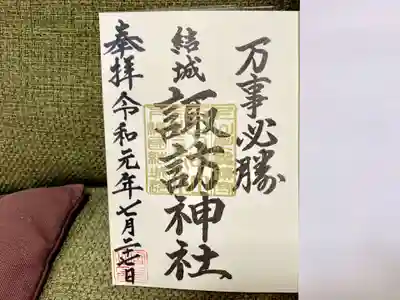 万事必勝
結城
諏訪神社
奉拝
令和元年七月二十七日